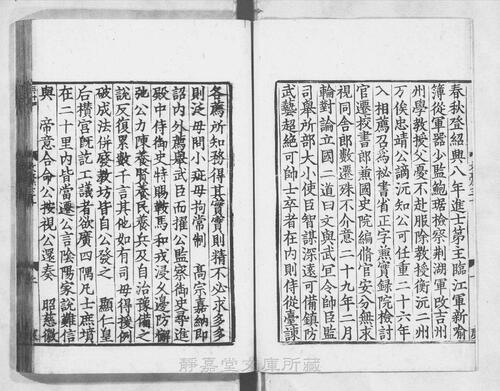 春秋登紹興八年進士第主臨江軍新喻
簿從軍器少監鮑琚檢察荆湖軍改吉州
州學教授父憂不赴服除教授衡沅二州
万俟忠靖公謫沅知公可任重二十六年
入相薦召為祕書省正字兼實録院檢討
官遷校書郎兼國史院編脩官安分無求
視同舎郎數遷殊不介意二十九年二月
輪對論立國二道曰文與武宜令帥臣監
司舉所部大小使臣智謀深遠可備鎮防
武藝超絶可帥士卒者在内則侍從臺諫
各薦所知務得其實實則猜不必求多多
則泛毋問小疵毋拘常制 髙宗嘉納即
詔内外薦舉武臣而擢公監察御史尋進
殿中侍御史特賜鞍馬和戎浸乆邊防懈
弛公力陳養賢養民養兵及自治豫備之
說反復累數千言其他如有司毋得援例
破成法併罷教坊皆自公發之 顯仁皇
后欑宫旣訖工議者欲廣四隅凡士庶墳
在二十里内皆當遷公言隂陽家說難信
與 帝意合命公按視公還奏 昭慈徽
靜嘉堂文庫所藏